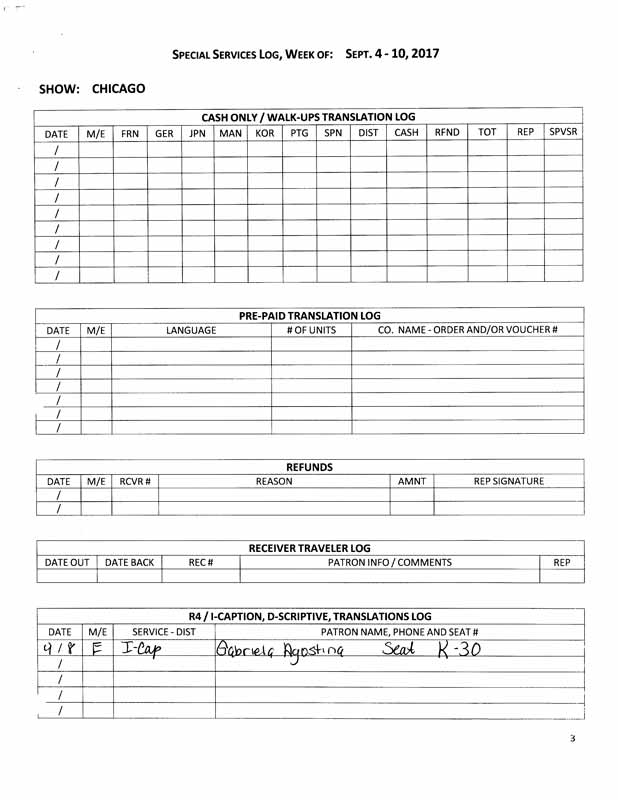 SPECIAL SERVICES LOG, WEEK OF: SEPT. 4 - 10, 2017
SHOW: CHICAGO
CASH ONLY / WALK-UPS TRANSLATION LOG
DATE M/E FRN GER JPN MAN KOR PTG SPN DIST CASH RFND TOT REP SPVSR
/
/
/
/
/
/
/
/
/
PRE-PAID TRANSLATION LOG
DATE M/E LANGUAGE # OF UNITS CO. NAME - ORDER AND/OR VOUCHER #
/
/
/
/
/
/
/
REFUNDS
DATE M/E RCVR # REASON AMNT REP SIGNATURE
/
/
RECEIVER TRAVELER LOG
DATE OUT DATE BACK REC # PATRON INFO / COMMENTS REP
R4 / I-CAPTION, D-SCRIPTIVE, TRANSLATIONS LOG
DATE M/E SERVICE - DIST PATRON NAME, PHONE AND SEAT #
9 / 8 E I-Cap Gabriela Agostina Seat K-30
/
/
/
/
3